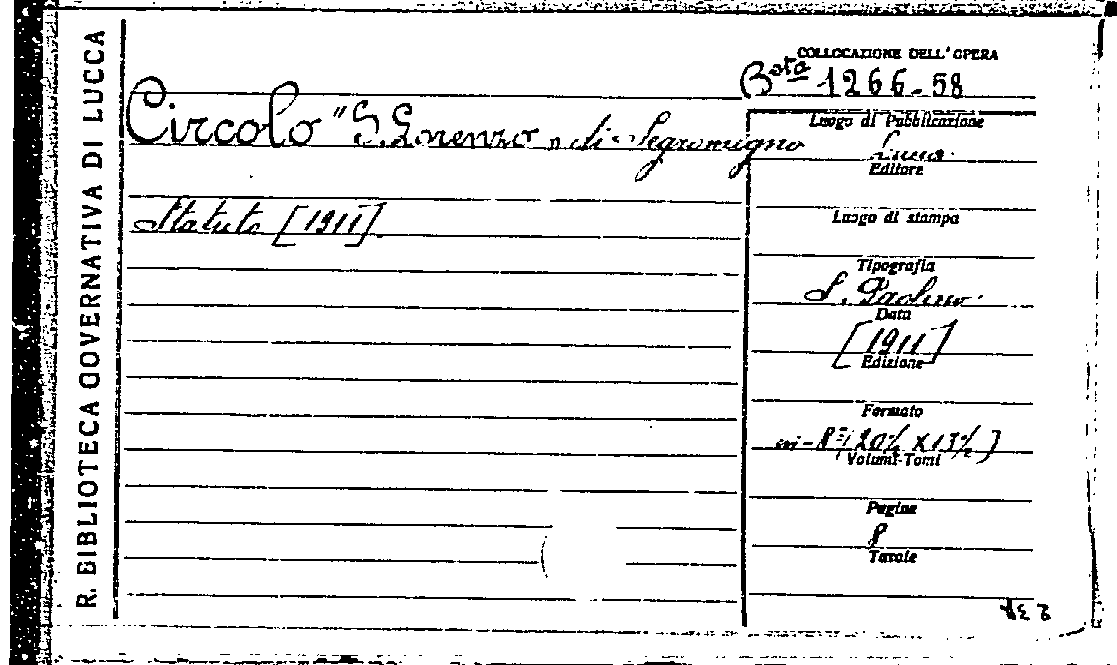 R. BIBLIOTECA GOVERNATIVA DI LUCCA
COLLOCAZIONE DELL'OPERA
Bsta 1266-58
Circolo "S. Lorenzo" di Segromigno
Statuto [1911]
Luogo di Pubblicazione
Lucca
Editore
Luogo di stampa
Tipografia
S. Paolino
Data
[1911]
Edizione
Formato
in-8° (20½ X 13½)
Volumi-Tomi
Pagine
8
Tavole